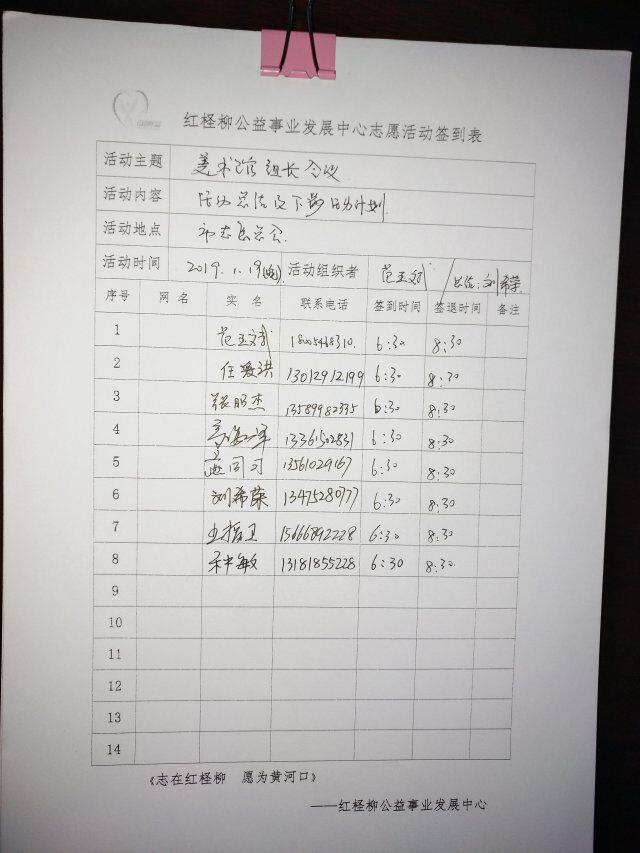 红柽柳公益事业发展中心志愿活动签到表
活动主题 美术馆组长会议
活动内容 活动总结及下步活动计划
活动地点
活动时间 2019.1.19(晚) 活动组织者 范玉斌 / 总结:刘希荣
序号 网名 实名 联系电话 签到时间 签退时间 备注
1 范玉斌 6:30 8:30
2 任爱洪 13012912199 6:30 8:30
3 张明杰 6:30 8:30
4 13361502831 6:30 8:30
5 13561029167 6:30 8:30
6 刘希荣 13475280777 6:30 8:30
7 15666892228 6:30 8:30
8 敏 13181855228 6:30 8:30
9
10
11
12
13
14
《志在红柽柳 愿为黄河口》
——红柽柳公益事业发展中心